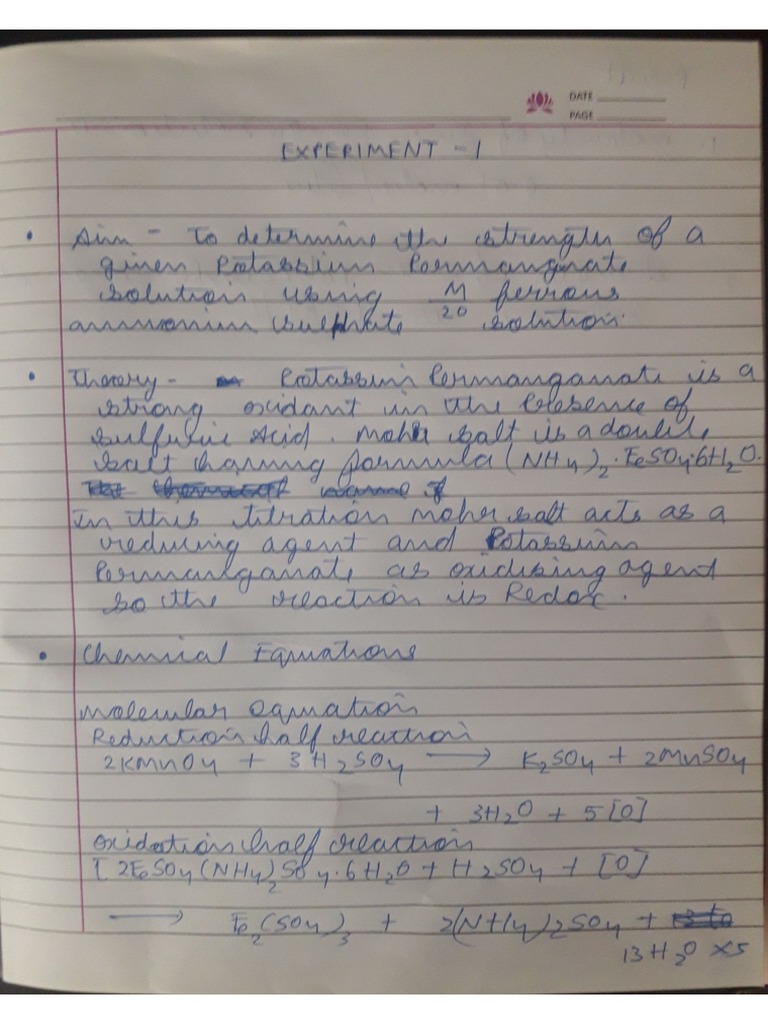 DATE
PAGE
EXPERIMENT - 1
• Aim - To determine the strength of a
given Potassium Permanganate
solution using M/20 ferrous
ammonium sulphate solution.
• Theory - Potassium Permanganate is a
strong oxidant in the Presence of
sulfuric Acid. Mohr salt is a double
salt having formula (NH4)2.FeSO4.6H2O.
In this titration mohr salt acts as a
reducing agent and Potassium
Permanganate as oxidising agent
so the reaction is Redox.
• Chemical Equations
Molecular equation
Reduction half reaction
2KMnO4 + 3H2SO4 ⟶ K2SO4 + 2MnSO4
+ 3H2O + 5[O]
oxidation half reaction
[2FeSO4(NH4)2SO4.6H2O + H2SO4 + [O]
⟶ Fe2(SO4)3 + 2(NH4)2SO4 +
13H2O ×5